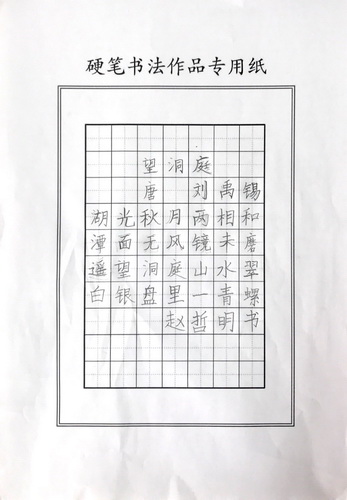 硬笔书法作品专用纸
望洞庭
唐 刘禹锡
湖光秋月两相和
潭面无风镜未磨
遥望洞庭山水翠
白银盘里一青螺
赵哲明书